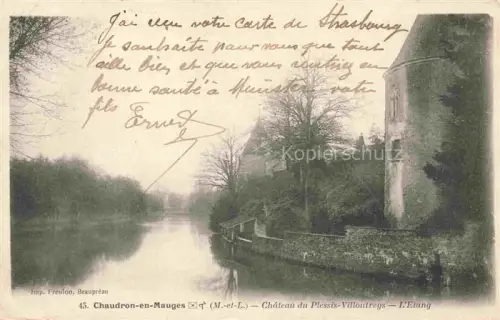 J'ai reçu votre carte de Strasbourg
je souhaite pour vous que tout
aille bien et que vous rentriez en
bonne santé à Munster votre
fils
Ernest
Kopierschutz
Imp. Frouton, Beaupréau
45. Chaudron-en-Mauges (M.-et-L.) — Château du Plessis-Villoutreys — L'Etang